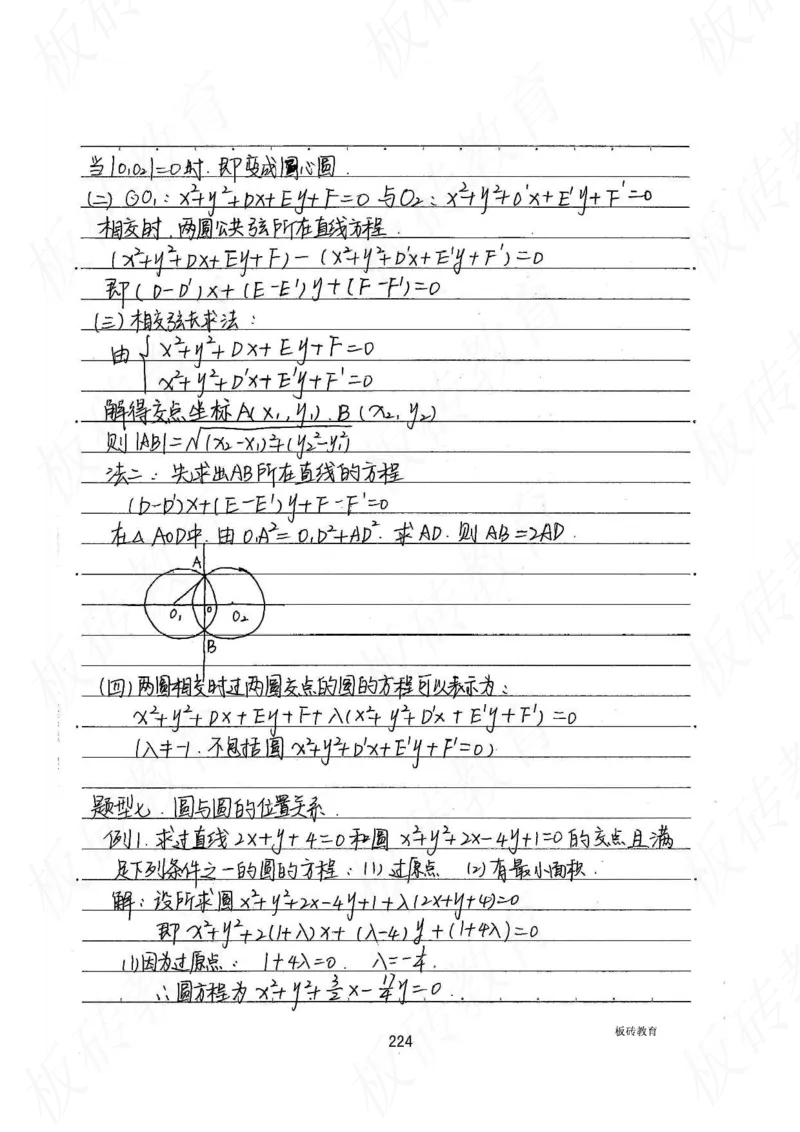 当|O₁O₂|=0时.即变成圆心圆.
(二) ⊙O₁: x²+y²+Dx+Ey+F=0 与O₂: x²+y²+D'x+E'y+F'=0
相交时,两圆公共弦所在直线方程.
(x²+y²+Dx+Ey+F)-(x²+y²+D'x+E'y+F')=0
即(D-D')x+(E-E')y+(F-F')=0
(三)相交弦长求法:
由{x²+y²+Dx+Ey+F=0
x²+y²+D'x+E'y+F'=0
解得交点坐标A(x₁,y₁).B(x₂,y₂)
则|AB|=√(x₂-x₁)²+(y₂²-y₁²)
法二:先求出AB所在直线的方程
(D-D')x+(E-E')y+F-F'=0
在△AOD中.由O₁A²=O₁D²+AD².求AD.则AB=2AD.
A
O₁ O O₂
B
(四)两圆相交时过两圆交点的圆的方程可以表示为:
x²+y²+Dx+Ey+F+λ(x²+y²+D'x+E'y+F')=0
(λ≠-1.不包括圆x²+y²+D'x+E'y+F'=0)
题型七.圆与圆的位置关系.
例1.求过直线2x+y+4=0和圆x²+y²+2x-4y+1=0的交点且满
足下列条件之一的圆的方程:(1)过原点 (2)有最小面积.
解:设所求圆x²+y²+2x-4y+1+λ(2x+y+4)=0
即x²+y²+2(1+λ)x+(λ-4)y+(1+4λ)=0
(1)因为过原点: 1+4λ=0. λ=-1/4.
∴圆方程为x²+y²+3/2x-17/4y=0.
板砖教育
224